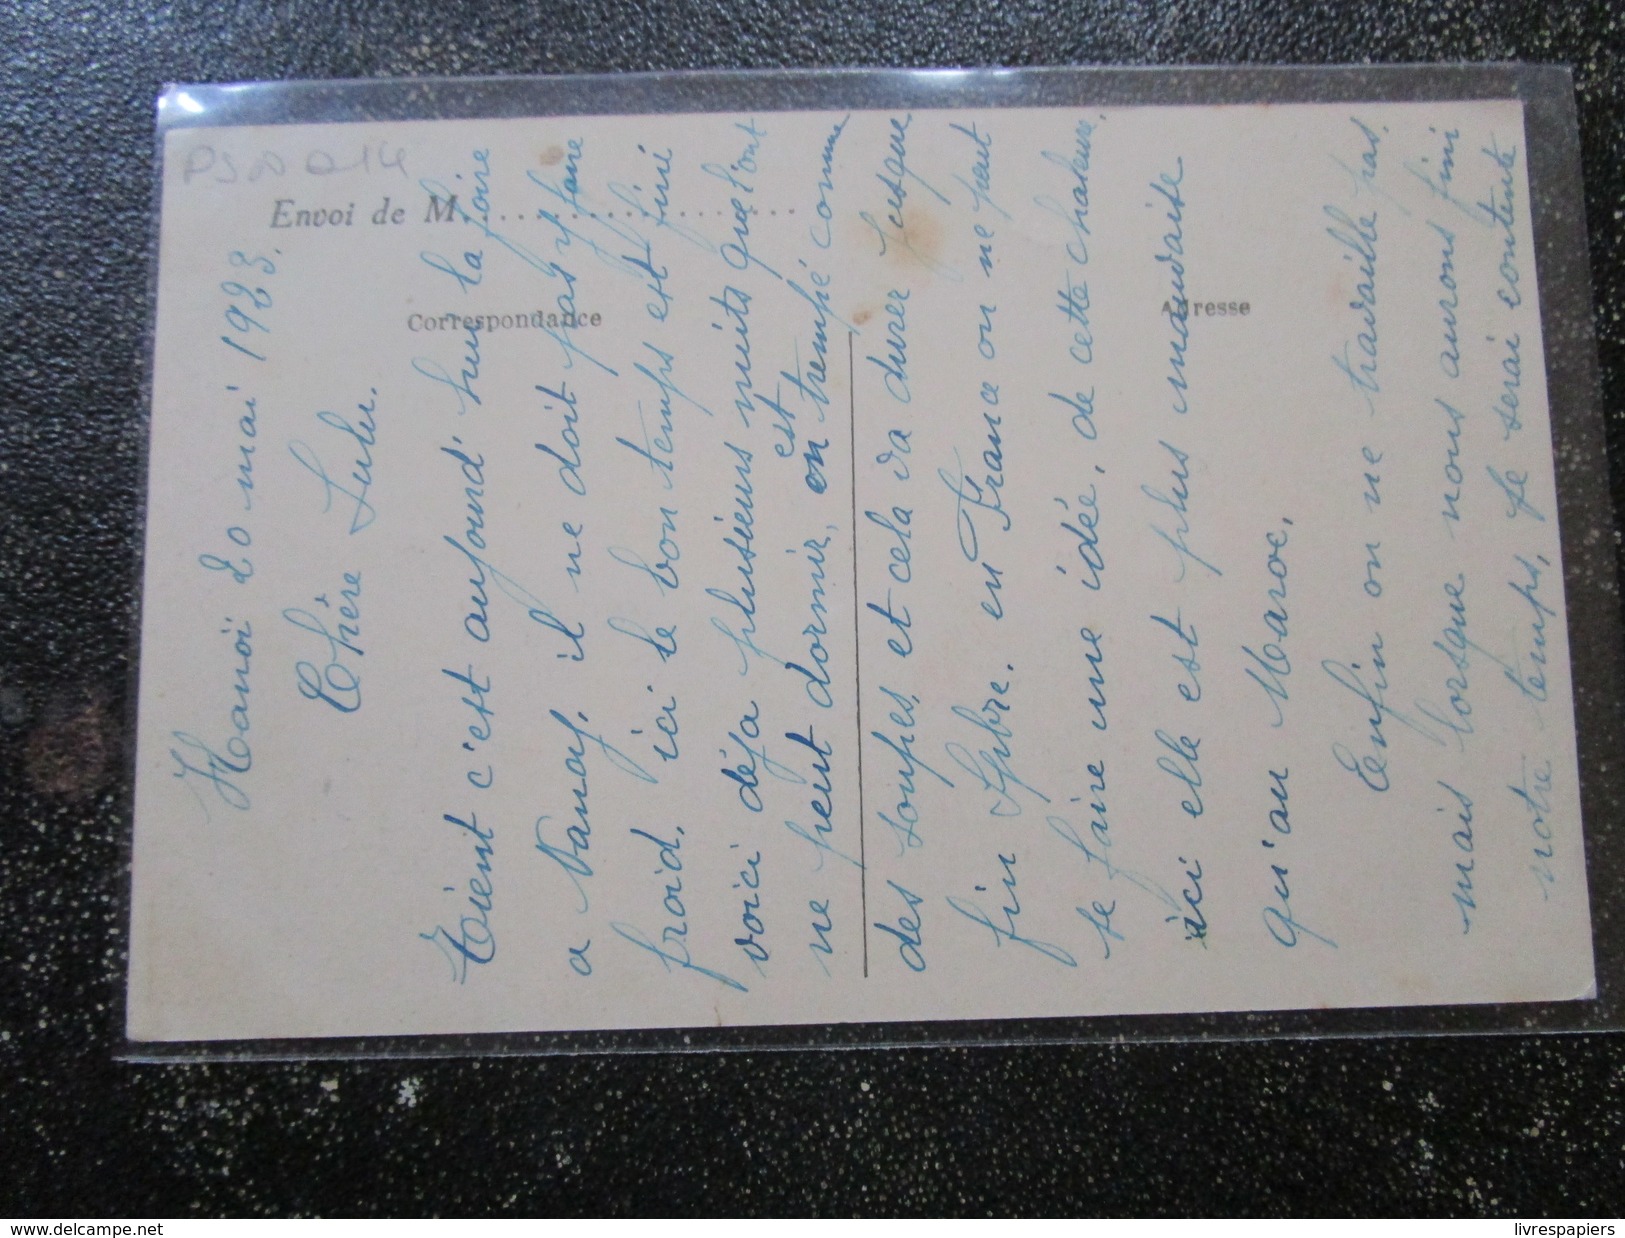 Envoi de M
Correspondance
Adresse
Hanoï 20 mai 1923.
Chère Lulu.
Tient c'est aujourd'hui la foire
a Nancy, il ne doit pas y faire
froid, ici le bon temps est fini
voici déja plusieurs nuits que l'ont
ne peut dormir, on est trempé comme
des soupes, et cela va durer jusque
fin 7bre. en France on ne peut
se faire une idée, de cette chaleur,
ici elle est plus mauvaise
qu'au Maroc,
Enfin on ne travaille pas,
mais lorsque nous aurons fini
notre temps, je serai contente
www.delcampe.net
livrespapiers